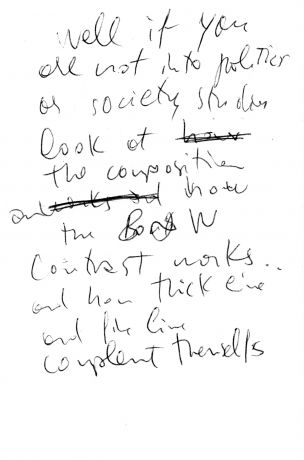 Well if you
are not into politics
or society studies
look at how
the composition
and works and how
the B and W
Contrast works..
and how thick line
and fine line
complent themselfs